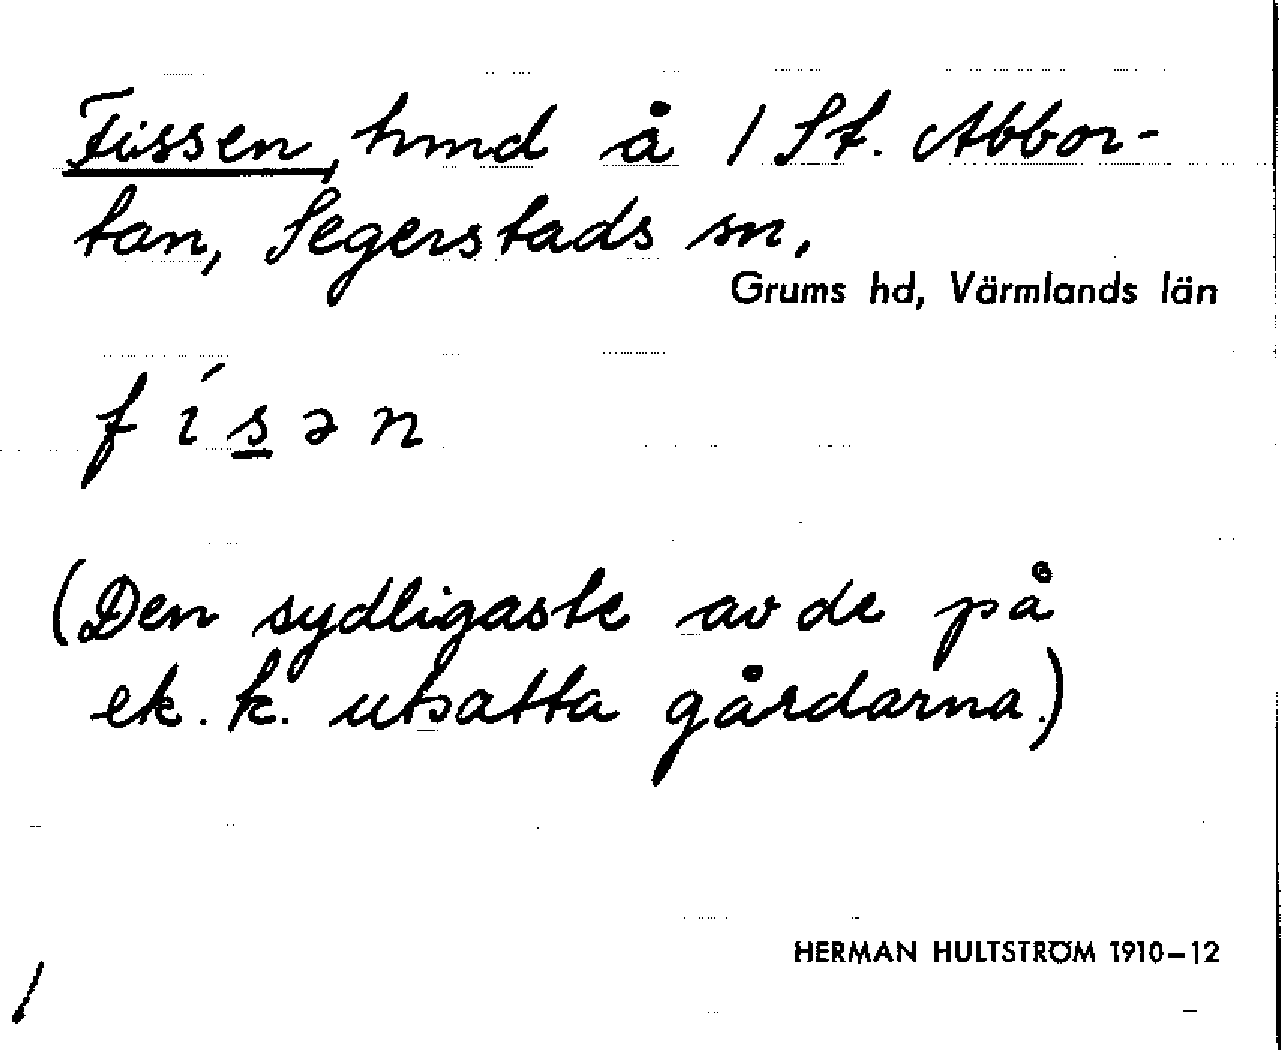 Fissen, hmd å 1 St. Abbor-
tan, Segerstads sn,
Grums hd, Värmlands län
f í s ə n
(Den sydligaste av de på
ek. k. utsatta gårdarna.)
HERMAN HULTSTRÖM 1910–12
/